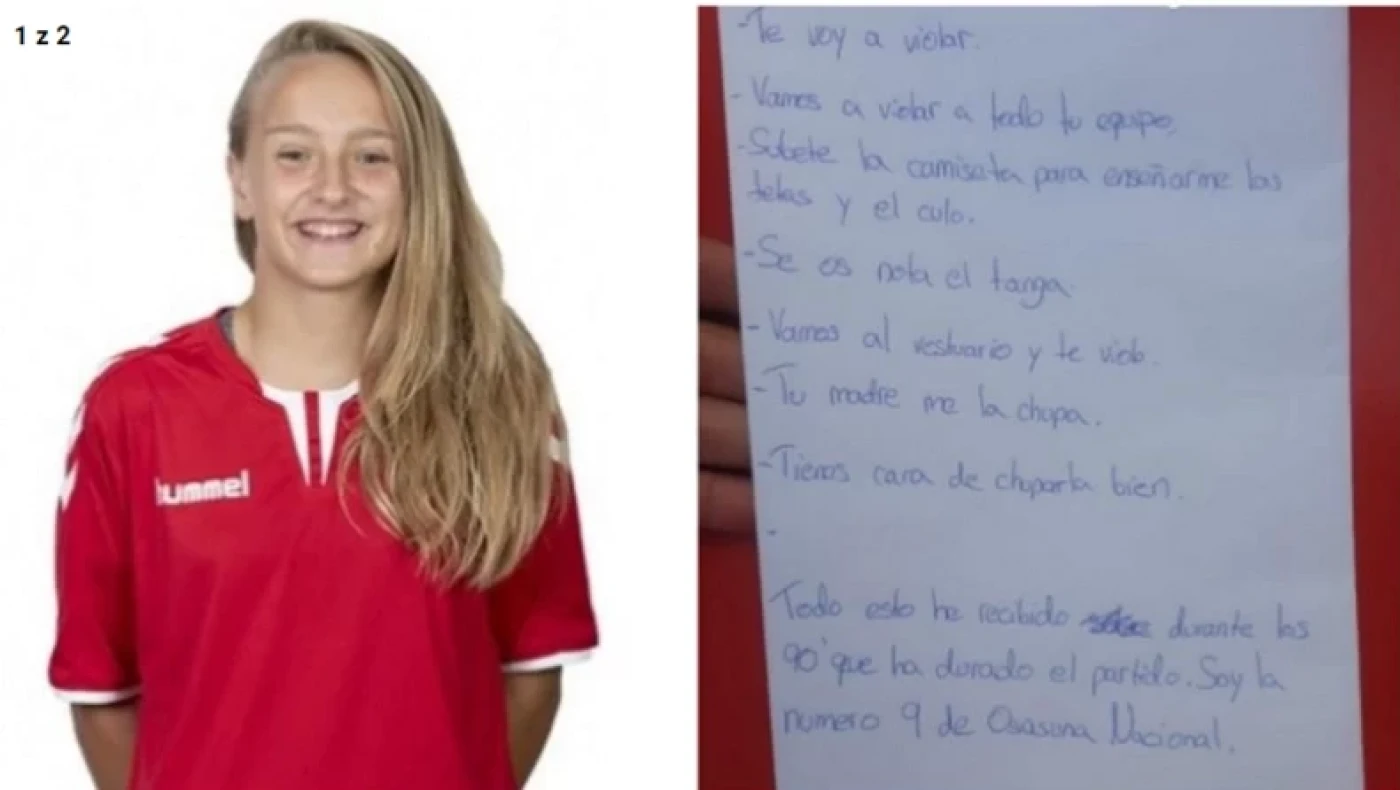 1 z 2
hummel
-Te voy a violar.
-Vamos a violar a todo tu equipo.
-Subete la camiseta para enseñarme las
tetas y el culo.
-Se os nota el tanga.
-Vamos al vestuario y te violo.
-Tu madre me la chupa.
-Tienes cara de chuparla bien.
-
Todo esto he recibido durante los
90' que ha durado el partido. Soy la
numero 9 de Osasuna Nacional.